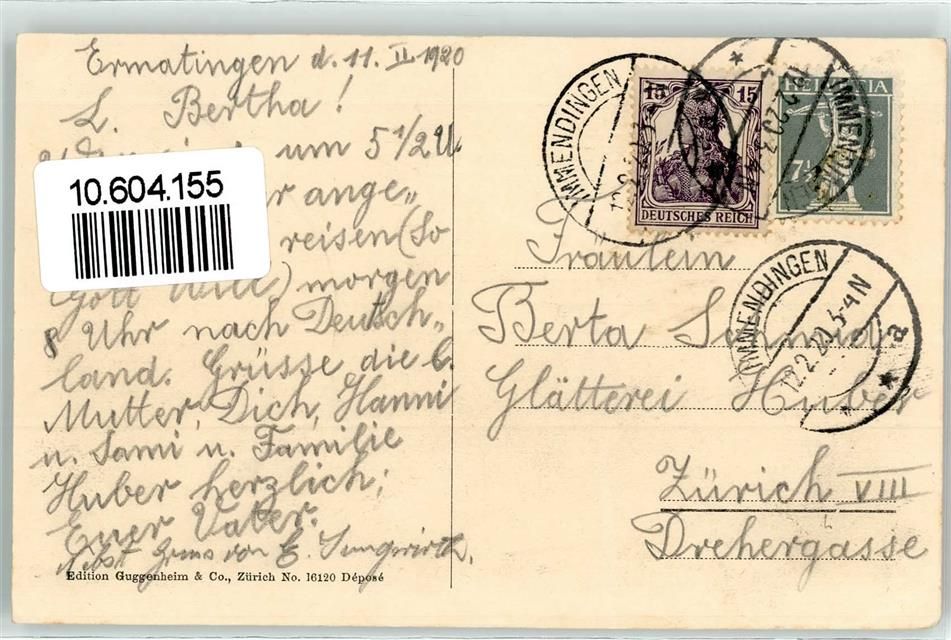 Ermatingen d. 11. II. 1920
L. Bertha!
um 5 1/2 U.
ange„
reisen (So
Gott will) morgen
8 Uhr nach Deutsch„
land. Grüsse die l.
Mutter, Dich, Hanni
u. Sami u. Familie
Huber herzlich;
Euer Vater.
Nebst Gruss von E.
Edition Guggenheim & Co., Zürich No. 16120 Déposé
10.604.155
IMMENDINGEN
15 15
DEUTSCHES REICH
HELVETIA
7½
IMMENDINGEN
IMMENDINGEN
12.2.20. 3-4N
a
Fräulein
Berta Schmid
Glätterei Huber
Zürich VIII
Drehergasse